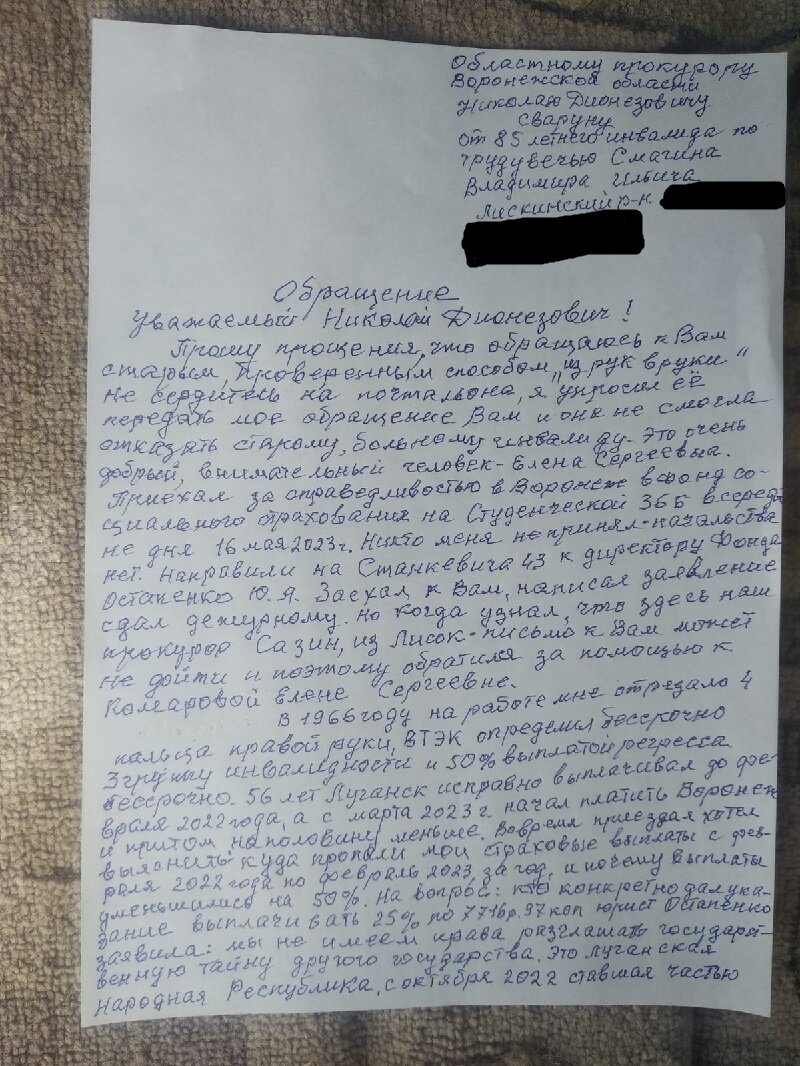 Областному прокурору
Воронежской области
Николаю Дионезовичу
Саврун
от 85 летнего инвалида по
трудувечью Смагина
Владимира Ильича
Лискинский р-н.
Обращение
Уважаемый Николай Дионезович!
Прошу прощения, что обращаюсь к Вам
старым, проверенным способом „из рук в руки"
Не сердитесь на почтальона, я упросил её
передать мое обращение Вам и она не смогла
отказать старому, больному инвалиду. Это очень
добрый, внимательный человек - Елена Сергеевна.
Приехал за справедливостью в Воронеж в фонд со-
циального страхования на Студенческой 36Б в середи
не дня 16 мая 2023г. Никто меня не принял - начальства
нет. Направили на Станкевича 43 к директору Фонда
Остапенко Ю.А. Заехал к Вам, написал заявление
сдал дежурному. Но когда узнал, что здесь наш
прокурор Сазин, из Лисок - письмо к Вам может
не дойти и поэтому обратился за помощью к
Комаровой Елене Сергеевне.
В 1966 году на работе мне отрезало 4
пальца правой руки, ВТЭК определил бессрочно
3 группу инвалидности и 50% выплатой регресса
бессрочно. 56 лет Луганск исправно выплачивал до фе-
враля 2022 года, а с марта 2023 г. начал платить Воронеж
и притом наполовину меньше. Вовремя приезда я хотел
выяснить куда пропали мои страховые выплаты с фев-
раля 2022 года по февраль 2023 за год, и почему выплаты
уменьшились на 50%. На вопрос: кто конкретно дал ука-
зание выплачивать 25% по 7716р.97 коп юрист Остапенко
заявила: мы не имеем права разглашать государст-
венную тайну другого государства. Это Луганская
Народная Республика, с октября 2022 ставшая частью